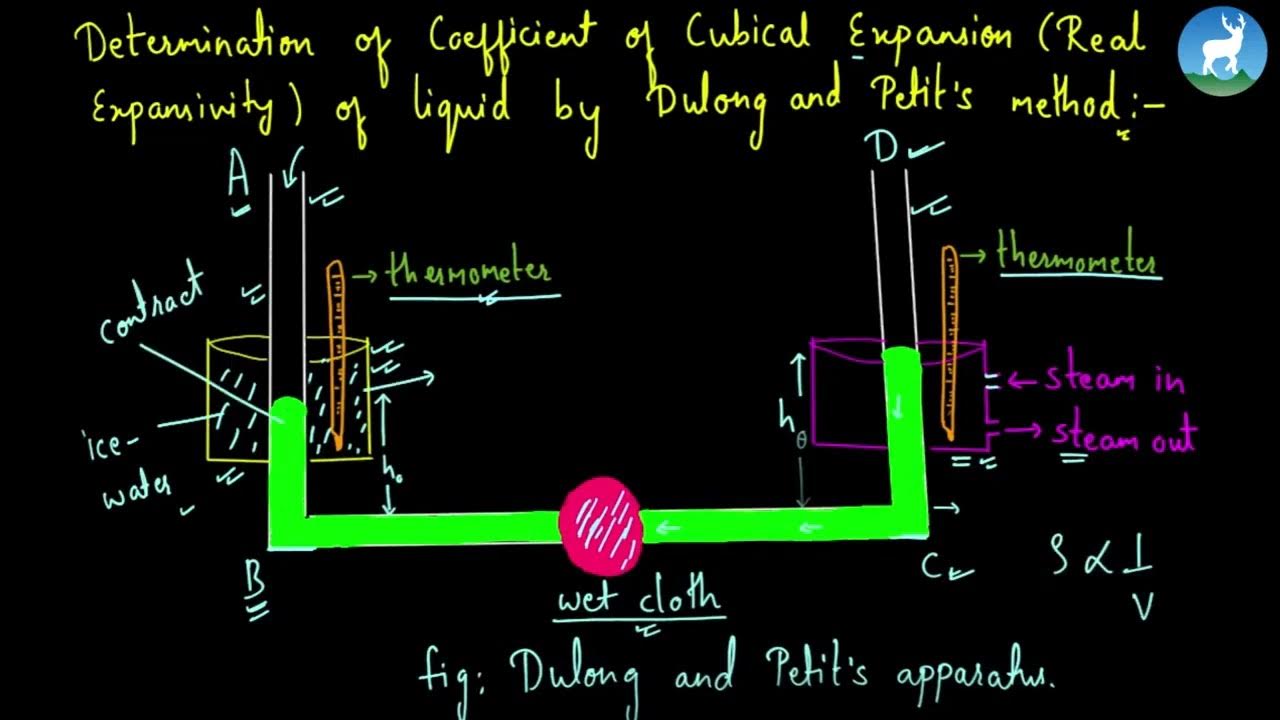 Determination of Coefficient of Cubical Expansion (Real
Expansivity) of liquid by Dulong and Petit's method:-
A
D
thermometer
thermometer
contract
steam in
steam out
ice-
water
h₀
hθ
B
C
wet cloth
ρ ∝ 1/V
fig: Dulong and Petit's apparatus.